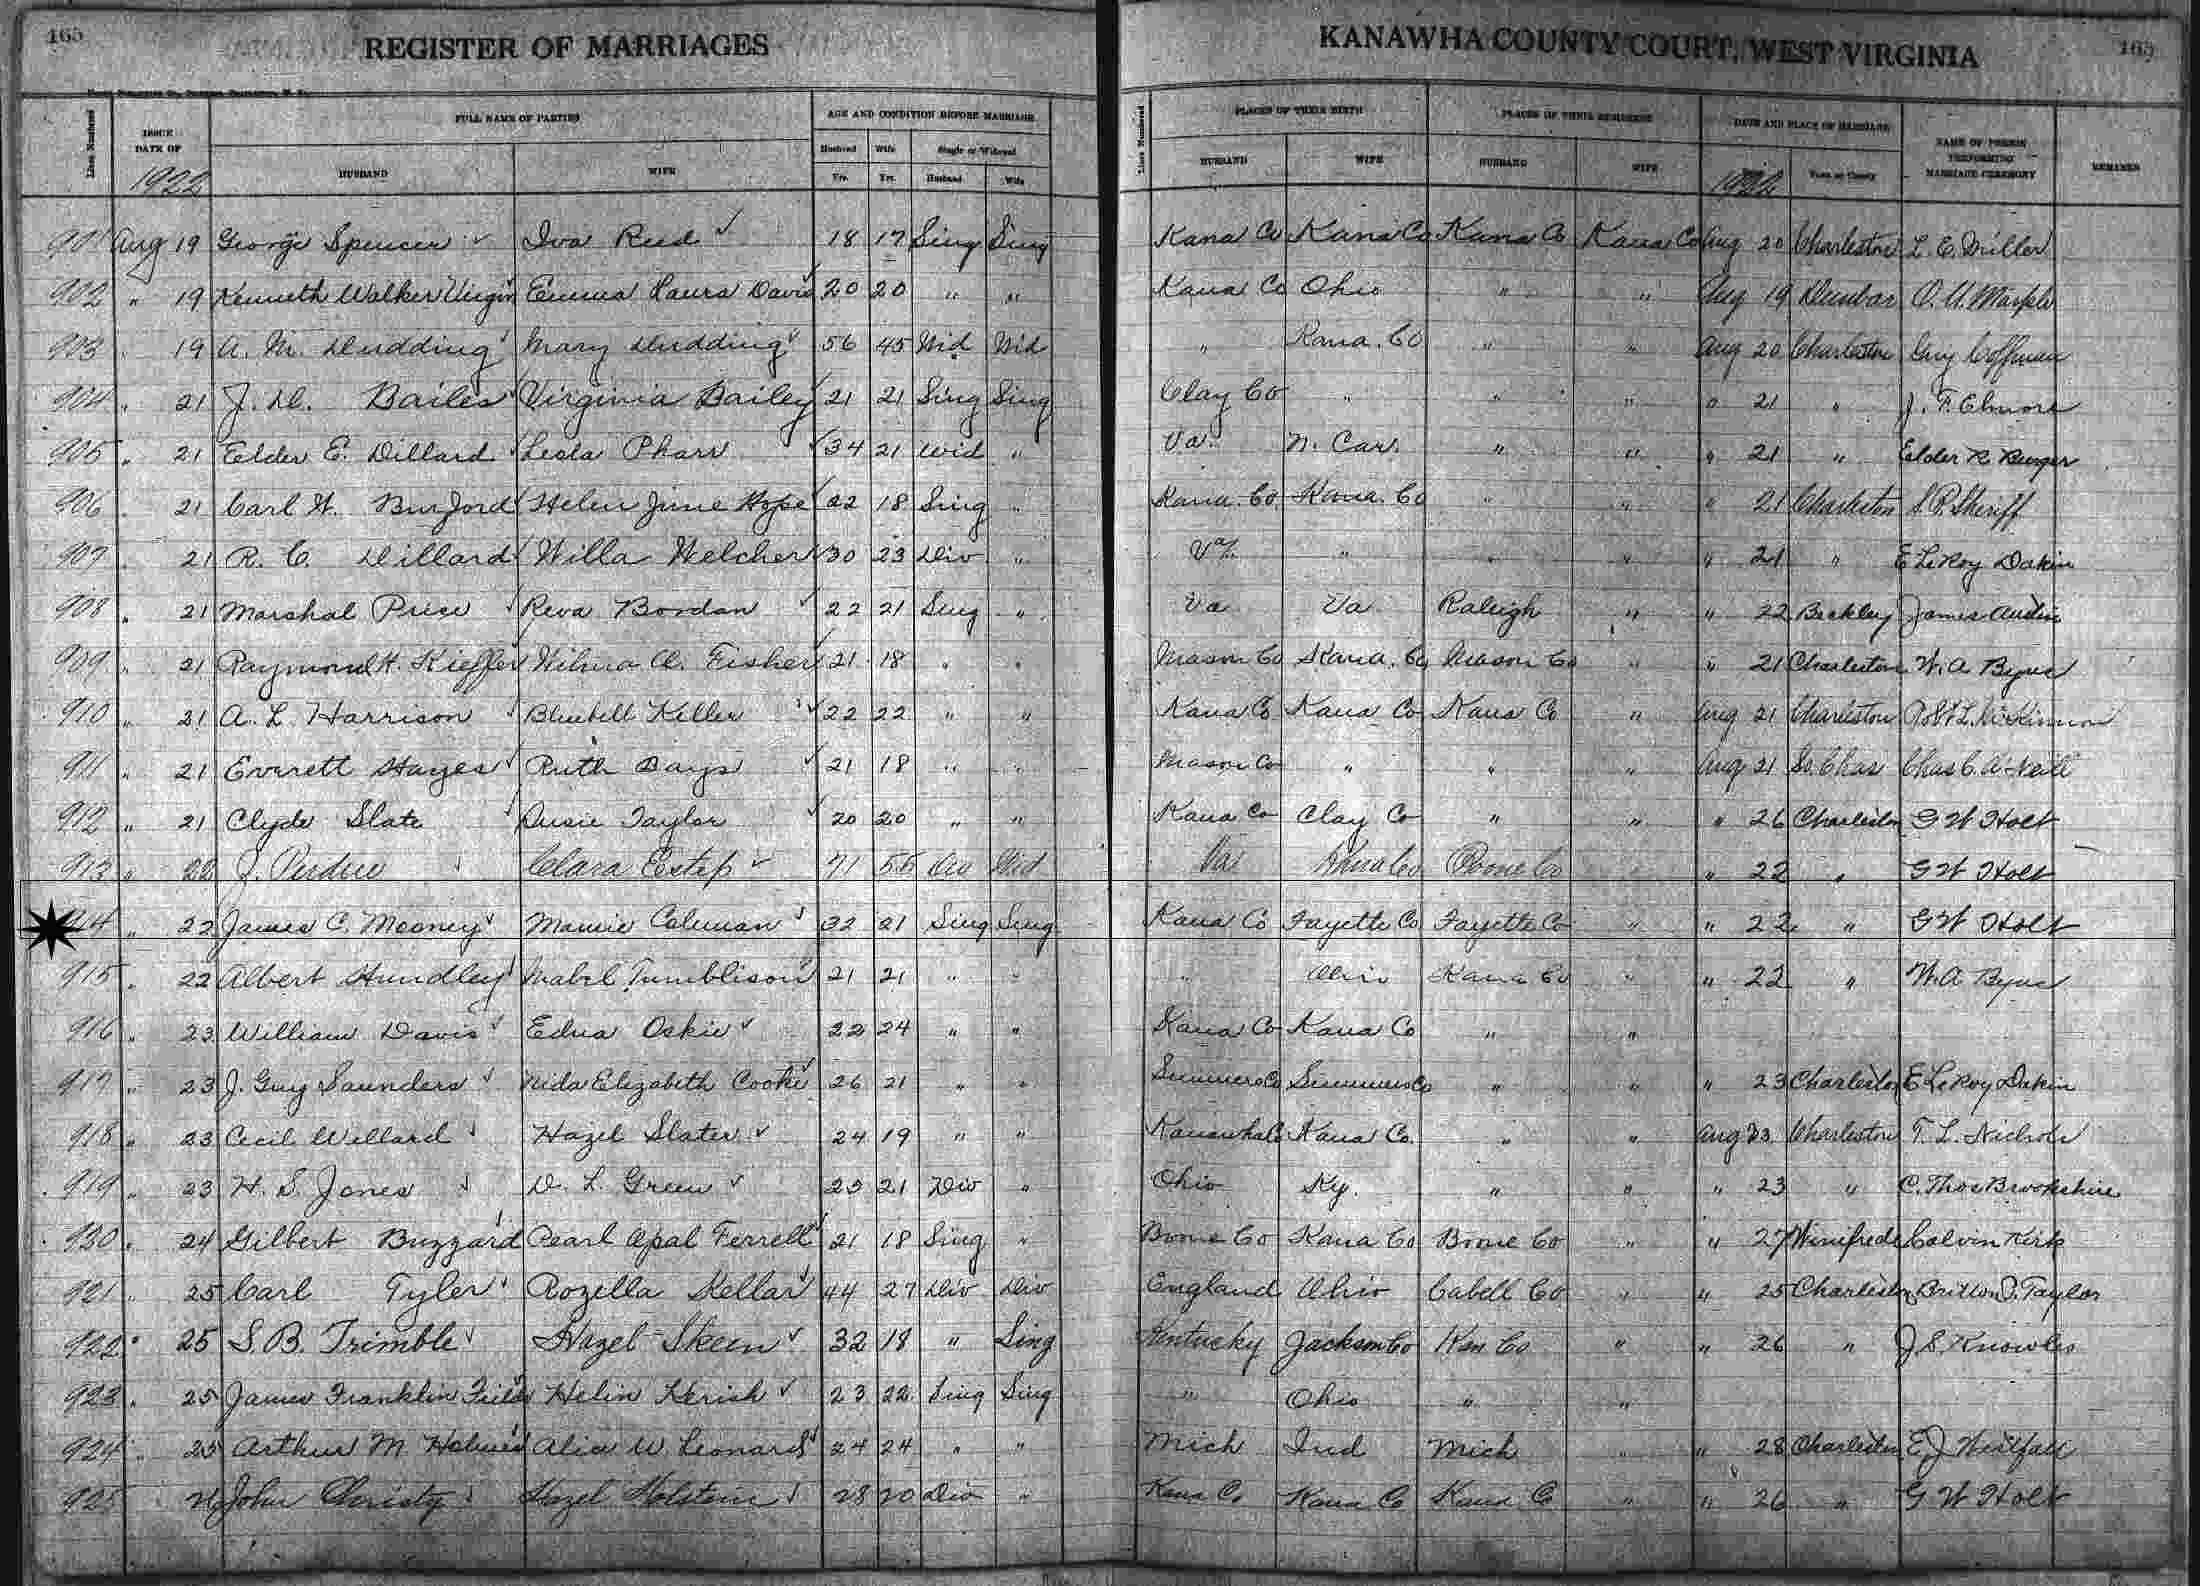 165
REGISTER OF MARRIAGES
KANAWHA COUNTY COURT, WEST VIRGINIA
165
Lines Numbered
ISSUE DATE OF
1922
FULL NAME OF PARTIES
HUSBAND
WIFE
AGE AND CONDITION BEFORE MARRIAGE
Husband Yrs.
Wife Yrs.
Single or Widowed
Husband
Wife
Lines Numbered
PLACES OF THEIR BIRTH
HUSBAND
WIFE
PLACES OF THEIR RESIDENCE
HUSBAND
WIFE
DATE AND PLACE OF MARRIAGE
1922
Town or County
NAME OF PERSON PERFORMING MARRIAGE CEREMONY
REMARKS
901 Aug 19 George Spencer Iva Reed 18 17 Sing Sing Kana Co Kana Co Kana Co Kana Co Aug 20 Charleston L. E. Miller
902 " 19 Kenneth Walker Emma Laura Davis 20 20 " " Kana Co Ohio " " Aug 19 Dunbar
903 " 19 A. M. Dudding Mary Dudding 56 45 Wid Wid " Kana. Co " " Aug 20 Charleston Guy Coffman
904 " 21 J. D. Bailes Virginia Bailey 21 21 Sing Sing Clay Co " " " " 21 " J. F. Elmore
905 " 21 Elder E. Dillard Leola Pharr 34 21 Wid " Va. N. Car. " " " 21 " Elder R. Burger
906 " 21 Carl W. Burford Helen June Hope 22 18 Sing " Kana. Co. Kana. Co " " " 21 Charleston S. P. Skeriff
907 " 21 R. C. Dillard Willa Welcher 30 23 Div " Va. " " " " 21 " E LeRoy Dakin
908 " 21 Marshal Price Reva Bordan 22 21 Sing " Va Va Raleigh " " 22 Beckley James Austin
909 " 21 Raymond H. Kieffer Wilma A. Fisher 21 18 " " Mason Co Kana. Co Mason Co " " 21 Charleston W. A Byus
910 " 21 A. L. Harrison Bluebell Keller 22 22 " " Kana Co Kana Co Kana Co " Aug 21 Charleston Robt L. McKinnon
911 " 21 Everett Hayes Ruth Bays 21 18 " " Mason Co " " " Aug 21 So. Chas Chas C. A. Neill
912 " 21 Clyde Slate Susie Taylor 20 20 " " Kana Co Clay Co " " " 26 Charleston G W Holt
913 " 22 J. Perdue Clara Estep 71 55 Div Wid Va Kana Co Boone Co " 22 " G W Holt
914 " 22 James C. Mooney Mamie Coleman 32 21 Sing Sing Kana Co Fayette Co Fayette Co " " 22 " G W Holt
915 " 22 Albert Hundley Mabel Tumblison 21 21 " " " Ohio Kana Co " " 22 " W. A Byus
916 " 23 William Davis Edna Oskie 22 24 " " Kana Co Kana Co " "
917 " 23 J. Guy Saunders Nida Elizabeth Cooke 26 21 " " Summers Co Summers Co " " " 23 Charleston E LeRoy Dakin
918 " 23 Cecil Willard Hazel Slater 24 19 " " Kanawha Co Kana Co. " " Aug 23 Charleston T. L. Nichols
919 " 23 H. S. Jones D. L. Green 23 21 Div " Ohio Ky. " " " 23 " C. Thos Brookshire
930 " 24 Gilbert Buzzard Pearl Opal Ferrell 21 18 Sing " Boone Co Kana Co Boone Co " " 27 Winifrede Calvin Kirk
921 " 25 Carl Tyler Rozella Kellar 44 27 Div Div England Ohio Cabell Co " " 25 Charleston Britton S. Taylor
922 " 25 S. B. Trimble Hazel Skeen 32 18 " Sing Kentucky Jackson Co Kan Co " " 26 " J S. Knowles
923 " 25 James Franklin Fields Helin Kerish 23 22 Sing Sing " Ohio " "
924 " 25 Arthur M. Holmes Alice W. Leonard 24 24 " " Mich Ind Mich " " 28 Charleston E. J Westfall
925 " 26 John Christy Hazel Holstein 28 20 Div " Kana Co Kana Co Kana Co " " 26 " G W Holt